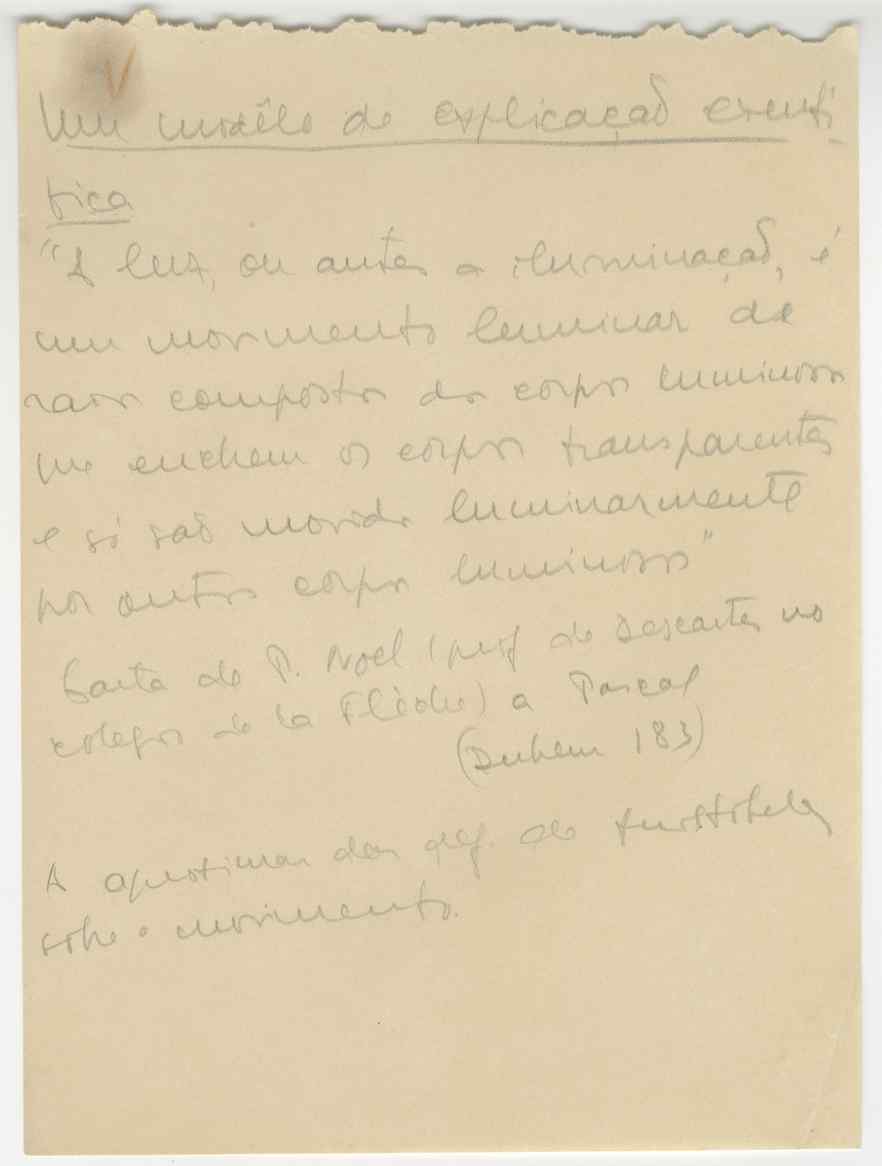 Um modêlo de explicação cienti
fica
"A luz, ou antes a iluminação, é
um movimento luminar de
raios compostos de corpos luminosos
que enchem os corpos transparentes
e só são movidos luminarmente
por outros corpos luminosos"
Carta do P. Noel (prof de Descartes no
colegio de La Flèche) a Pascal
(Duhem 183)
A aproximar das def. de Aristóteles
sobre o movimento.